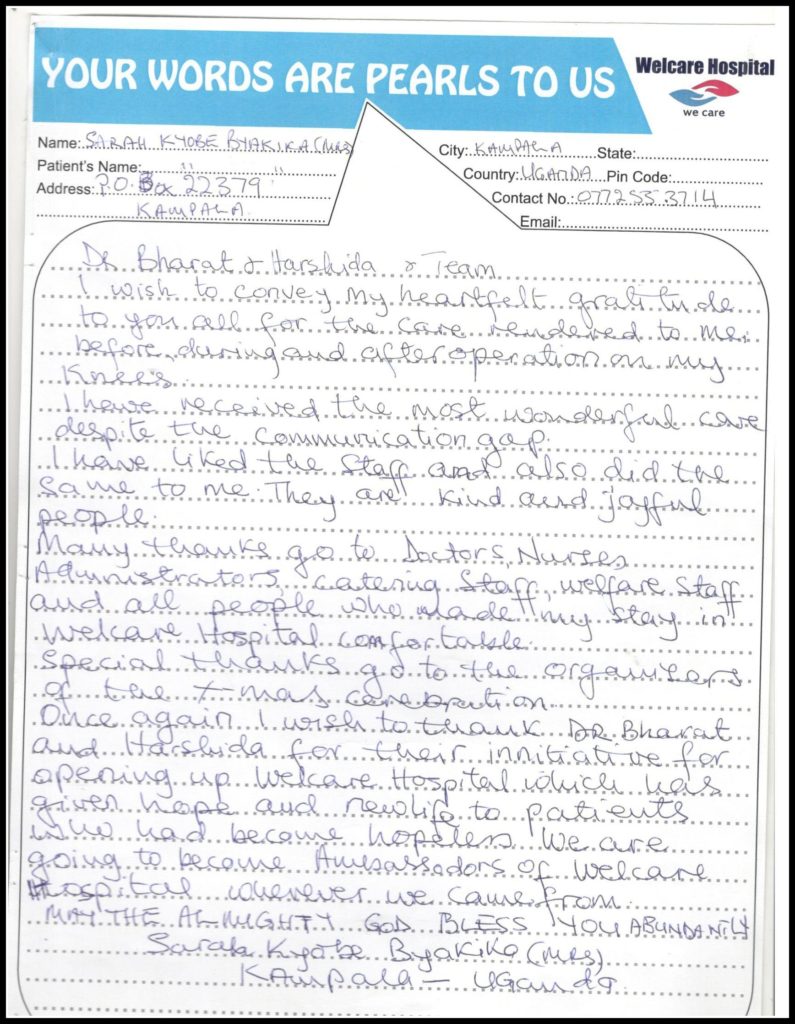 YOUR WORDS ARE PEARLS TO US
Welcare Hospital
we care
Name: SARAH KYOBE BYAKIKA (MRS)
City: KAMPALA State:
Patient's Name: " "
Country: UGANDA Pin Code:
Address: P.O. Box 22379
Contact No.: 0772553714
KAMPALA
Email:
Dr Bharat & Harshida & Team
I wish to convey my heartfelt gratitude
to you all for the care rendered to me
before, during and after operation on my
Knees.
I have received the most wonderful care
despite the communication gap.
I have liked the Staff and also did the
same to me. They are kind and joyful
people.
Many thanks go to Doctors, Nurses
Administrators, catering Staff, welfare Staff
and all people who made my stay in
Welcare Hospital comfortable.
Special thanks go to the organisers
of the X-mas carebration.
Once again I wish to thank DR. Bharat
and Harshida for their innitiative for
opening up Welcare Hospital which has
given hope and new life to patients
who had become hopeless. We are
going to become Ambassadors of Welcare
Hospital wherever we came from.
MAY THE ALMIGHTY GOD BLESS YOU ABUNDANTLY
Sarah Kyobe Byakika (MRS)
Kampala – Uganda